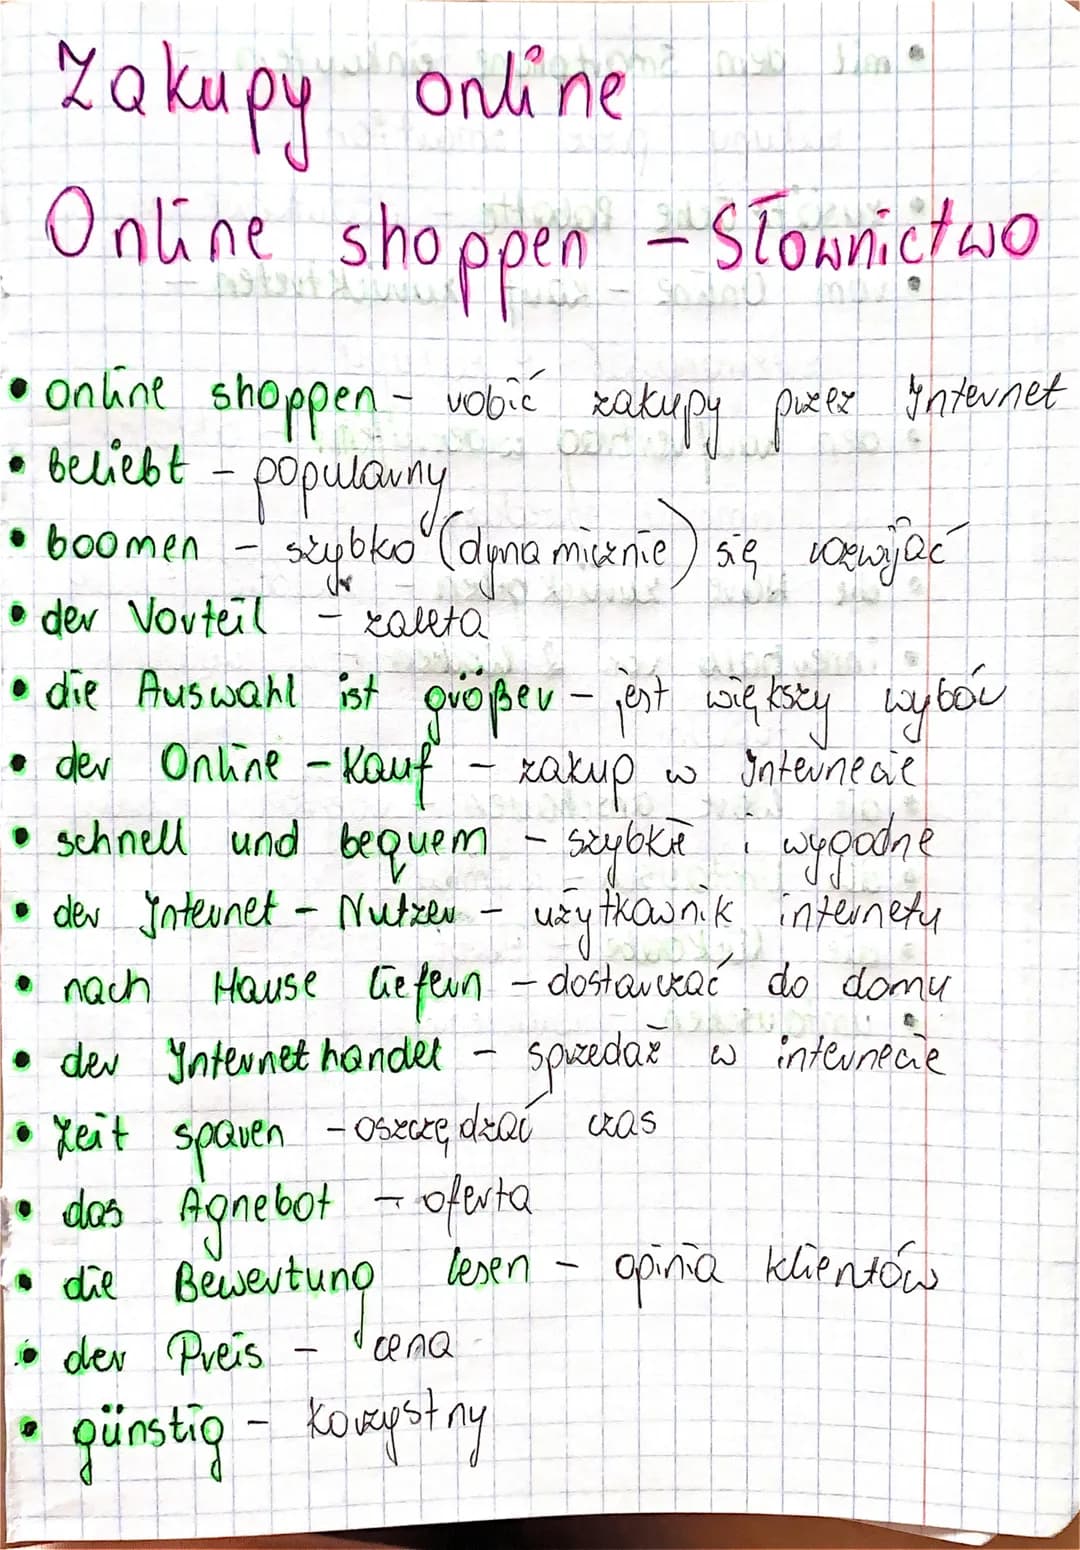 Zakupy online
Online shoppen - Słownictwo
• online shoppen - robić zakupy przez Internet
• beliebt - popularny
• boomen - szybko (dynamicznie) się rozwijać
• der Vorteil - zaleta
• die Auswahl ist größer - jest większy wybór
• der Online - Kauf - zakup w Internecie
• schnell und bequem - szybkie i wygodne
• der Internet - Nutzer - użytkownik internetu
• nach Hause liefern - dostarczać do domu
• der Internethandel - sprzedaż w internecie
• Zeit sparen - oszczędzać czas
• das Agnebot - oferta
• die Bewertung lesen - opinia klientów
• der Preis - cena
• günstig - korzystny